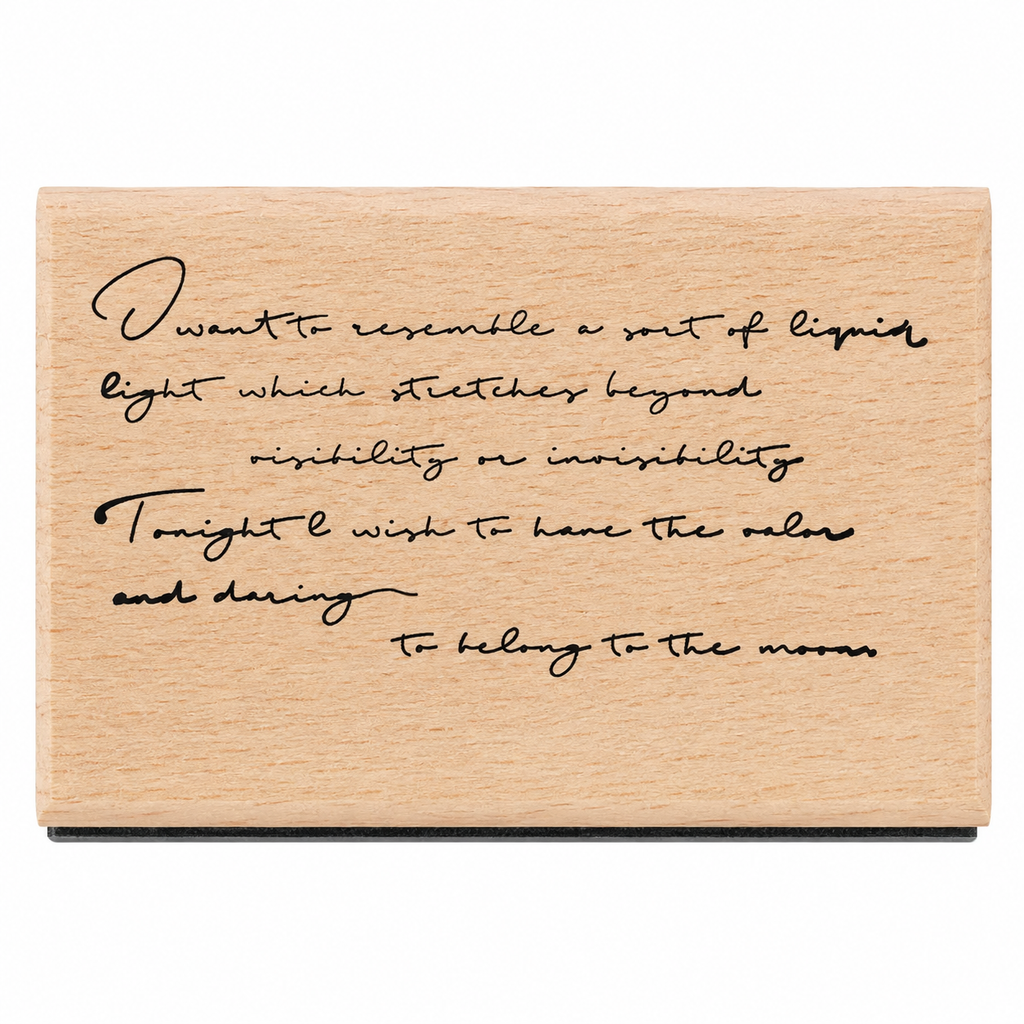 I want to resemble a sort of liquid
light which stretches beyond
visibility or invisibility
Tonight I wish to have the valor
and daring
to belong to the moon